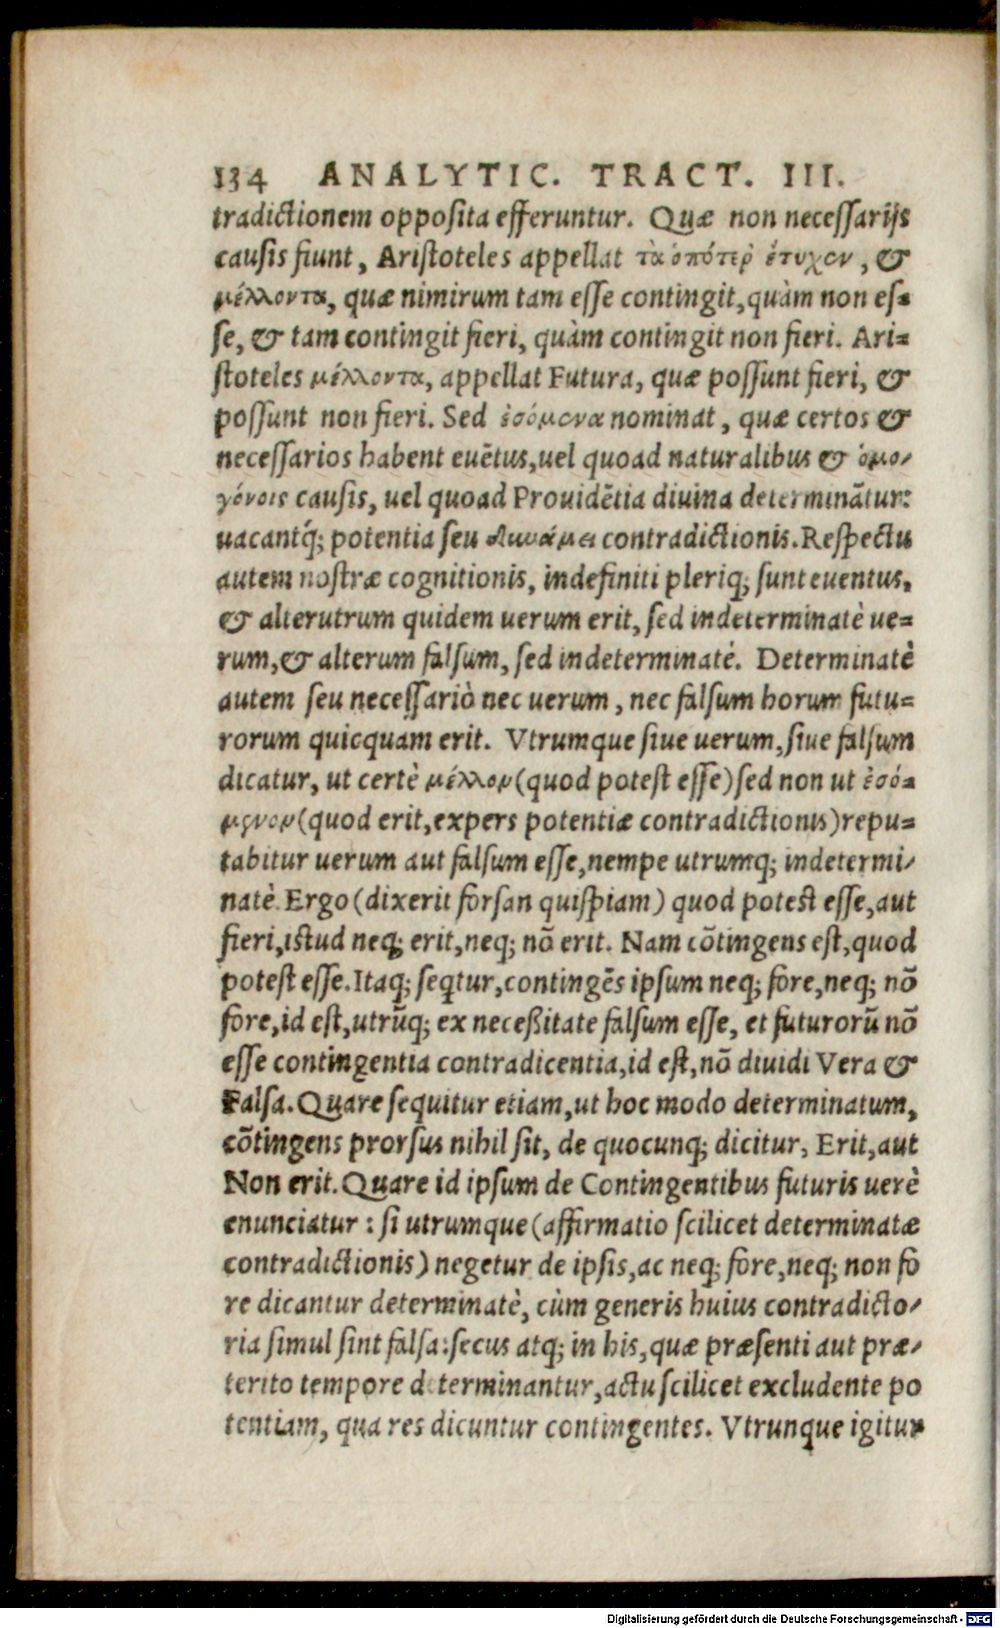 134 ANALYTIC. TRACT. III.
tradictionem opposita efferuntur. Quæ non necessarijs
causis fiunt, Aristoteles appellat τὰ ὁπότερ ἔτυχεν, &
μέλλοντα, quæ nimirum tam esse contingit, quàm non es-
se, & tam contingit fieri, quàm contingit non fieri. Ari-
stoteles μέλλοντα, appellat Futura, quæ possunt fieri, &
possunt non fieri. Sed ἐσόμενα nominat, quæ certos &
necessarios habent euẽtus, uel quoad naturalibus & ὁμο-
γόνοις causis, uel quoad Prouidẽtia diuina determinãtur:
uacantq́; potentia seu δυνάμει contradictionis. Respectu
autem nostræ cognitionis, indefiniti pleriq; sunt euentus,
& alterutrum quidem uerum erit, sed indeterminatè ue-
rum, & alterum falsum, sed indeterminatè. Determinatè
autem seu necessariò nec uerum, nec falsum horum futu-
rorum quicquam erit. Vtrumque siue uerum, siue falsum
dicatur, ut certè μέλλον (quod potest esse) sed non ut ἐσό-
μενον (quod erit, expers potentiæ contradictionis) repu-
tabitur uerum aut falsum esse, nempe utrumq; indetermi-
natè. Ergo (dixerit forsan quispiam) quod potest esse, aut
fieri, istud neq; erit, neq; nõ erit. Nam cõtingens est, quod
potest esse. Itaq; seqtur, contingẽs ipsum neq; fore, neq; nõ
fore, id est, utrũq; ex neceßitate falsum esse, et futurorũ nõ
esse contingentia contradicentia, id est, nõ diuidi Vera &
Falsa. Quare sequitur etiam, ut hoc modo determinatum,
cõtingens prorsus nihil sit, de quocunq; dicitur, Erit, aut
Non erit. Quare id ipsum de Contingentibus futuris uerè
enunciatur: si utrumque (affirmatio scilicet determinatæ
contradictionis) negetur de ipsis, ac neq; fore, neq; non fo
re dicantur determinatè, cùm generis huius contradicto-
ria simul sint falsa: secus atq; in his, quæ præsenti aut præ-
terito tempore determinantur, actu scilicet excludente po
tentiam, qua res dicuntur contingentes. Vtrunque igitur
Digitalisierung gefördert durch die Deutsche Forschungsgemeinschaft - DFG